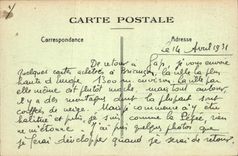 CARTE POSTALE
Correspondance
Adresse
Le 14 Avril 1931
De retour à Gap, je vous envoie
quelques cartes achetées à Briançon, la ville la plus
haute d'Europe 1300 m. environ. La ville par
elle même est plutôt moche, mais tout autour,
il y a des montagnes dont la plupart sont
coiffées de neige. Mais comme on s'y
habitue et puis, je suis comme le Pépé, rien
ne m'étonne. J'ai pris quelques photos que
je ferai développer quand je serai de retour.